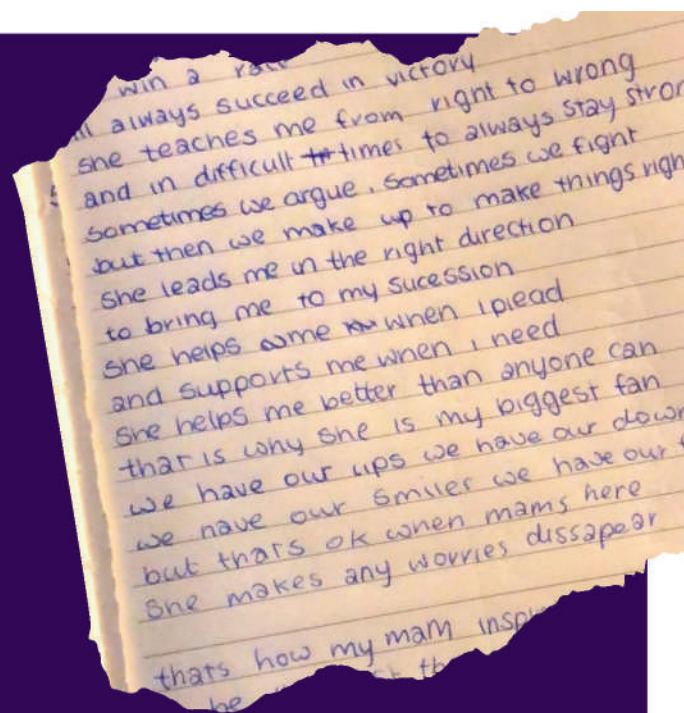 win a
always succeed in victory
she teaches me from right to wrong
and in difficult times to always stay
sometimes we argue, sometimes we fight
but then we make up to make things
she leads me in the right direction
to bring me to my sucession
she helps me when i plead
and supports me when i need
she helps me better than anyone can
that is why she is my biggest fan
we have our ups we have our
we have our smiles we have our
but thats ok when mams here
she makes any worries dissapear
thats how my mam
be